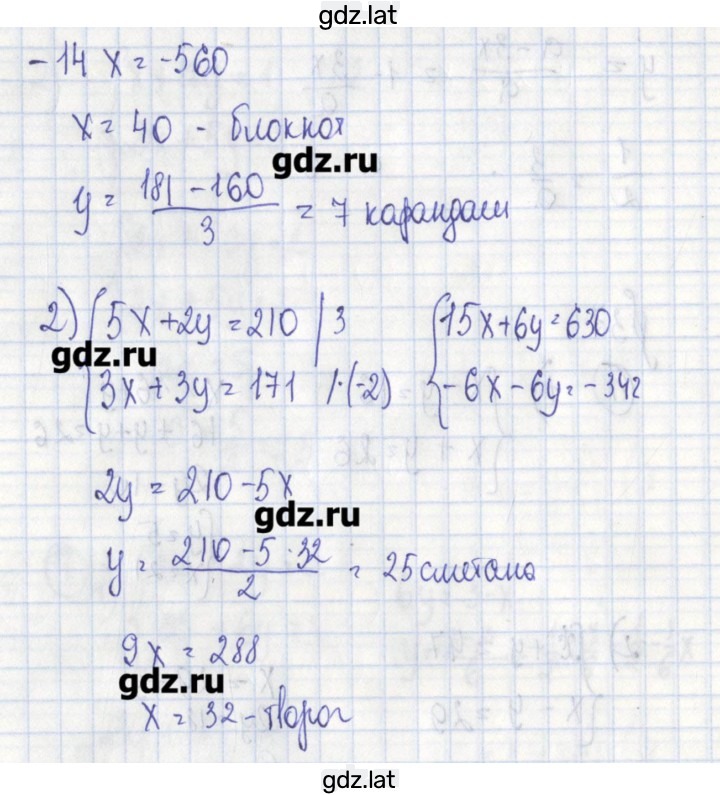 gdz.lat
-14x = -560
x = 40 - блокнот
gdz.ru
y = (181 - 160)/3 = 7 карандаш
2) { 5x + 2y = 210 | 3 { 15x + 6y = 630
gdz.ru
3x + 3y = 171 | ·(-2) - 6x - 6y = - 342
2y = 210 - 5x
gdz.ru
y = (210 - 5 · 32)/2 = 25 сметана
9x = 288
gdz.ru
x = 32 - творог
gdz.lat